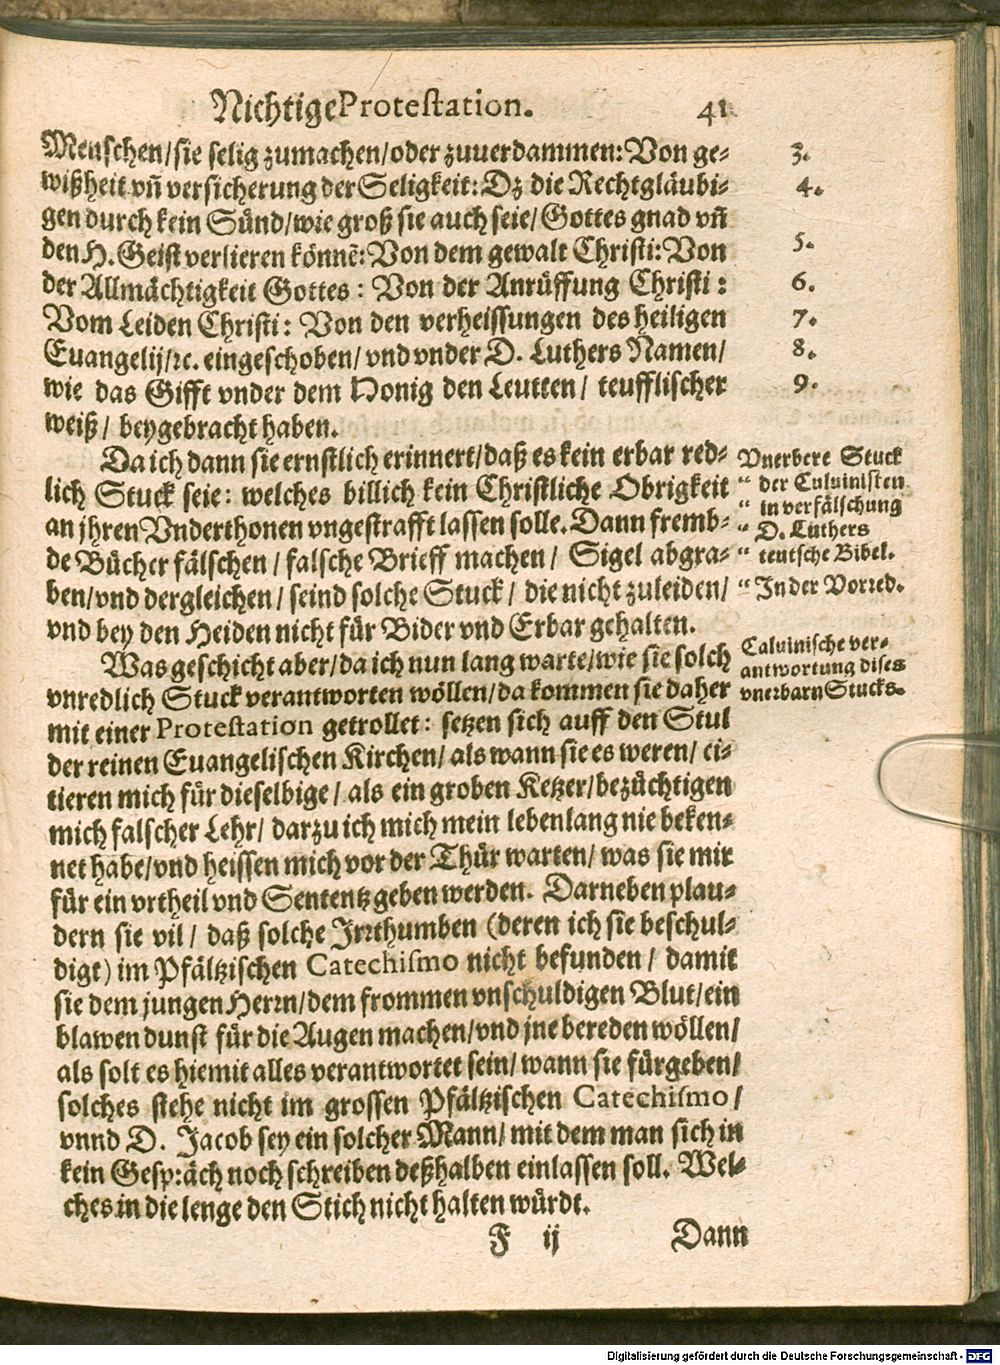 Nichtige Protestation. 41
Menschen/sie selig zumachen/oder zuuerdammen: Von ge-
wißheit vñ versicherung der Seligkeit: Dz die Rechtgläubi-
gen durch kein Sünd/wie groß sie auch seie/Gottes gnad vñ
den H. Geist verlieren könnẽ: Von dem gewalt Christi: Von
der Allmächtigkeit Gottes: Von der Anrüffung Christi:
Vom Leiden Christi: Von den verheissungen des heiligen
Euangelij/ꝛc. eingeschoben/vnd vnder D. Luthers Namen/
wie das Gifft vnder dem Honig den Leutten/ teufflischer
weiß/ beygebracht haben.
3.
4.
5.
6.
7.
8.
9.
Da ich dann sie ernstlich erinnert/daß es kein erbar red-
lich Stuck seie: welches billich kein Christliche Obrigkeit
an jhren Vnderthonen vngestrafft lassen solle. Dann fremb-
de Bücher fälschen/falsche Brieff machen/ Sigel abgra-
ben/vnd dergleichen/seind solche Stuck/ die nicht zuleiden/
vnd bey den Heiden nicht für Bider vnd Erbar gehalten.
Vnerbere Stuck
" der Caluinisten
" in verfälschung
" D. Luthers
" teutsche Bibel.
" In der Vorred.
Was geschicht aber/da ich nun lang warte/wie sie solch
vnredlich Stuck verantworten wöllen/da kommen sie daher
mit einer Protestation getrollet: setzen sich auff den Stul
der reinen Euangelischen Kirchen/als wann sie es weren/ ci-
tieren mich für dieselbige/als ein groben Ketzer/bezüchtigen
mich falscher Lehr/ darzu ich mich mein lebenlang nie beken-
net habe/vnd heissen mich vor der Thür warten/was sie mir
für ein vrtheil vnd Sententz geben werden. Darneben plau-
dern sie vil/ daß solche Irrthumben (deren ich sie beschul-
digt) im Pfältzischen Catechismo nicht befunden/ damit
sie dem jungen Herrn/dem frommen vnschuldigen Blut/ein
blawen dunst für die Augen machen/vnd jne bereden wöllen/
als solt es hiemit alles verantwortet sein/wann sie fürgeben/
solches stehe nicht im grossen Pfältzischen Catechismo/
vnnd D. Jacob sey ein solcher Mann/mit dem man sich in
kein Gespräch noch schreiben deßhalben einlassen soll. Wel-
ches in die lenge den Stich nicht halten würdt.
Caluinische ver-
antwortung dises
vnerbarn Stucks.
F ij Dann
Digitalisierung gefördert durch die Deutsche Forschungsgemeinschaft - DFG